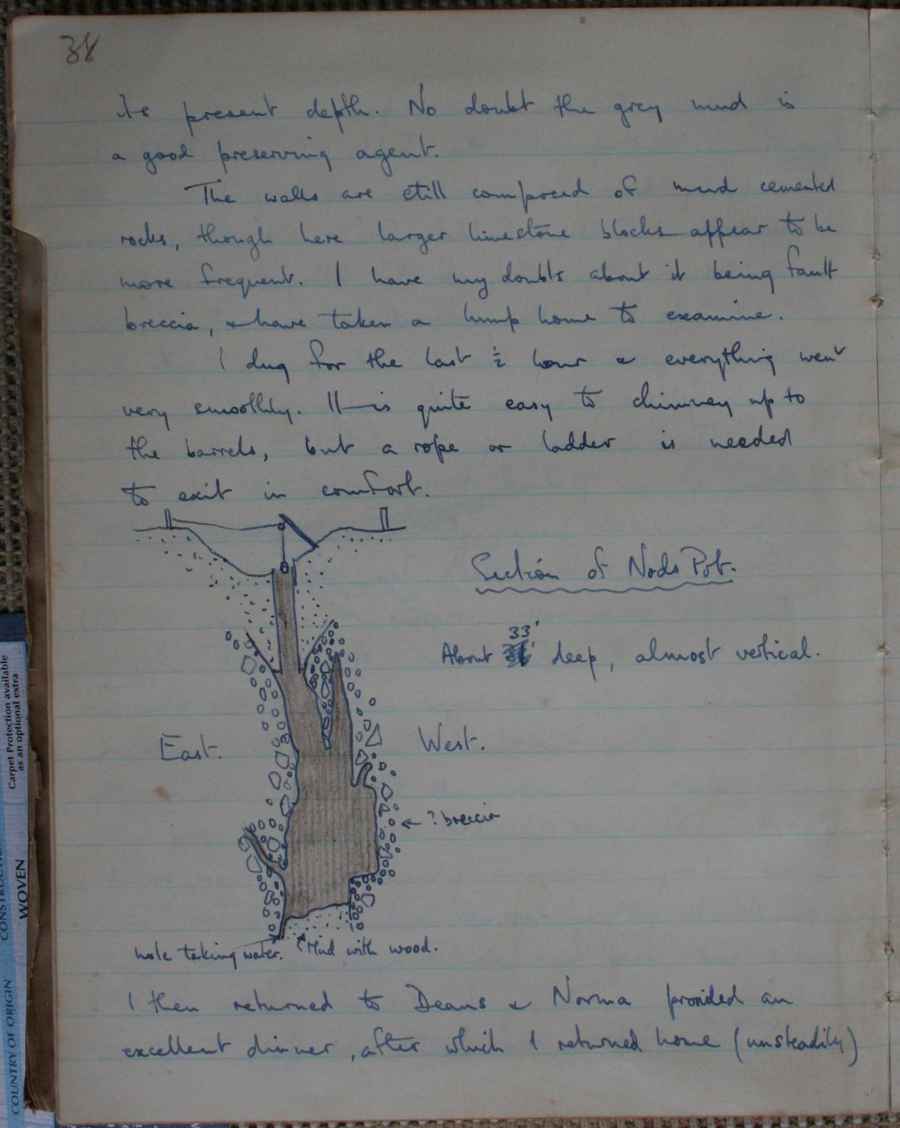 38
its present depth. No doubt the grey mud is
a good preserving agent.
The walls are still composed of mud cemented
rocks, though here larger limestone blocks appear to be
more frequent. I have my doubts about it being fault
breccia, & have taken a lump home to examine.
I dug for the last ½ hour & everything went
very smoothly. It is quite easy to chimney up to
the barrels, but a rope or ladder is needed
to exit in comfort.
Section of Nods Pot.
About 33' deep, almost vertical.
East.
West.
← ? breccia
hole taking water.
Mud with wood.
I then returned to Deans & Norma provided an
excellent dinner, after which I returned home (unsteadily)
Carpet Protection available
as an optional extra
WOVEN
COUNTRY OF ORIGIN